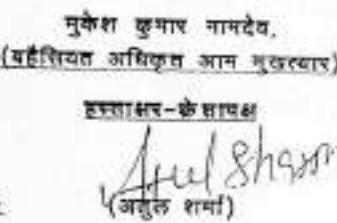 मुकेश कुमार नामदेव,
(बहैसियत अधिकृत आम मुखत्यार)
हस्ताक्षर-के सापक्ष
Atul Sharm
(अतुल शर्मा)